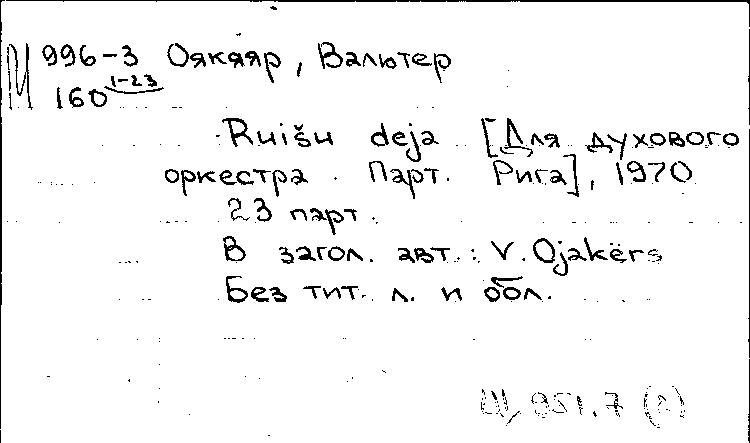 М 996-3 Оякяяр, Вальтер
160 1-23
Ruišu deja [Для духового
оркестра. Парт. Рига], 1970
23 парт.
В загол. авт.: V. Ojakērs
Без тит. л. и обл.
951.7 (2)